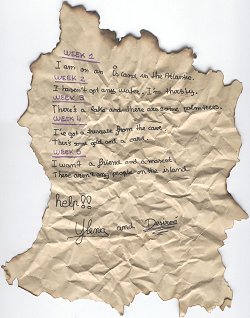 WEEK 1
I am on an island in the Atlantic.
WEEK 2
I haven't got any water, I'm thirsty.
WEEK 3
There's a lake and there are some palmtrees.
WEEK 4
I've got a treasure from the cave
There's some gold and a card.
WEEK 5
I want a friend and a mascot
There aren't any people on the island.
help!!
Ylena and Desireé